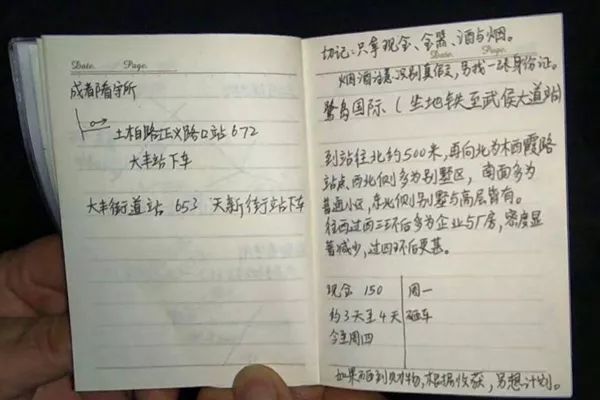 Date. Page.
成都看守所
土柏路正义路口站 672
大丰站下车
大丰街道站 653 天新街站下车
切记：只拿现金、金器、酒与烟。
Date. Page.
烟酒注意识别真假，另找一张身份证。
鹭岛国际（坐地铁至武侯大道站）
到站往北约500米，再向北为木西霞路
站点，西北侧多为别墅区，南面多为
普通小区，东北侧别墅与高层皆有。
往西过西三环后多为企业与厂房，密度显
著减少，过四环后更甚。
现金 150 周一
约3天至4天 砸车
今至周四
如果砸到财物，根据收获，另想计划。